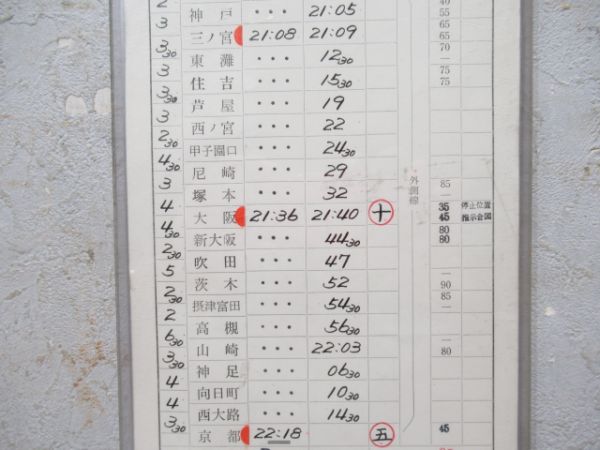 2 神戸 ・・・ 21:05 55
3 三ノ宮 21:08 21:09 65
3 30 東灘 ・・・ 12 30 70
3 住吉 ・・・ 15 30 75 75
3 30 芦屋 ・・・ 19
3 西ノ宮 ・・・ 22
2 30 甲子園口 ・・・ 24 30
4 30 尼崎 ・・・ 29 外側線 85
3 塚本 ・・・ 32
4 大阪 21:36 21:40 十 35 45 停止位置 指示合図
4 30 新大阪 ・・・ 44 30 80 80
2 30 吹田 ・・・ 47
5 茨木 ・・・ 52 90
2 30 摂津富田 ・・・ 54 30 85
2 高槻 ・・・ 56 30
6 30 山崎 ・・・ 22:03 80
3 30 神足 ・・・ 06 30
4 向日町 ・・・ 10 30
4 西大路 ・・・ 14 30
3 30 京都 22:18 五 45